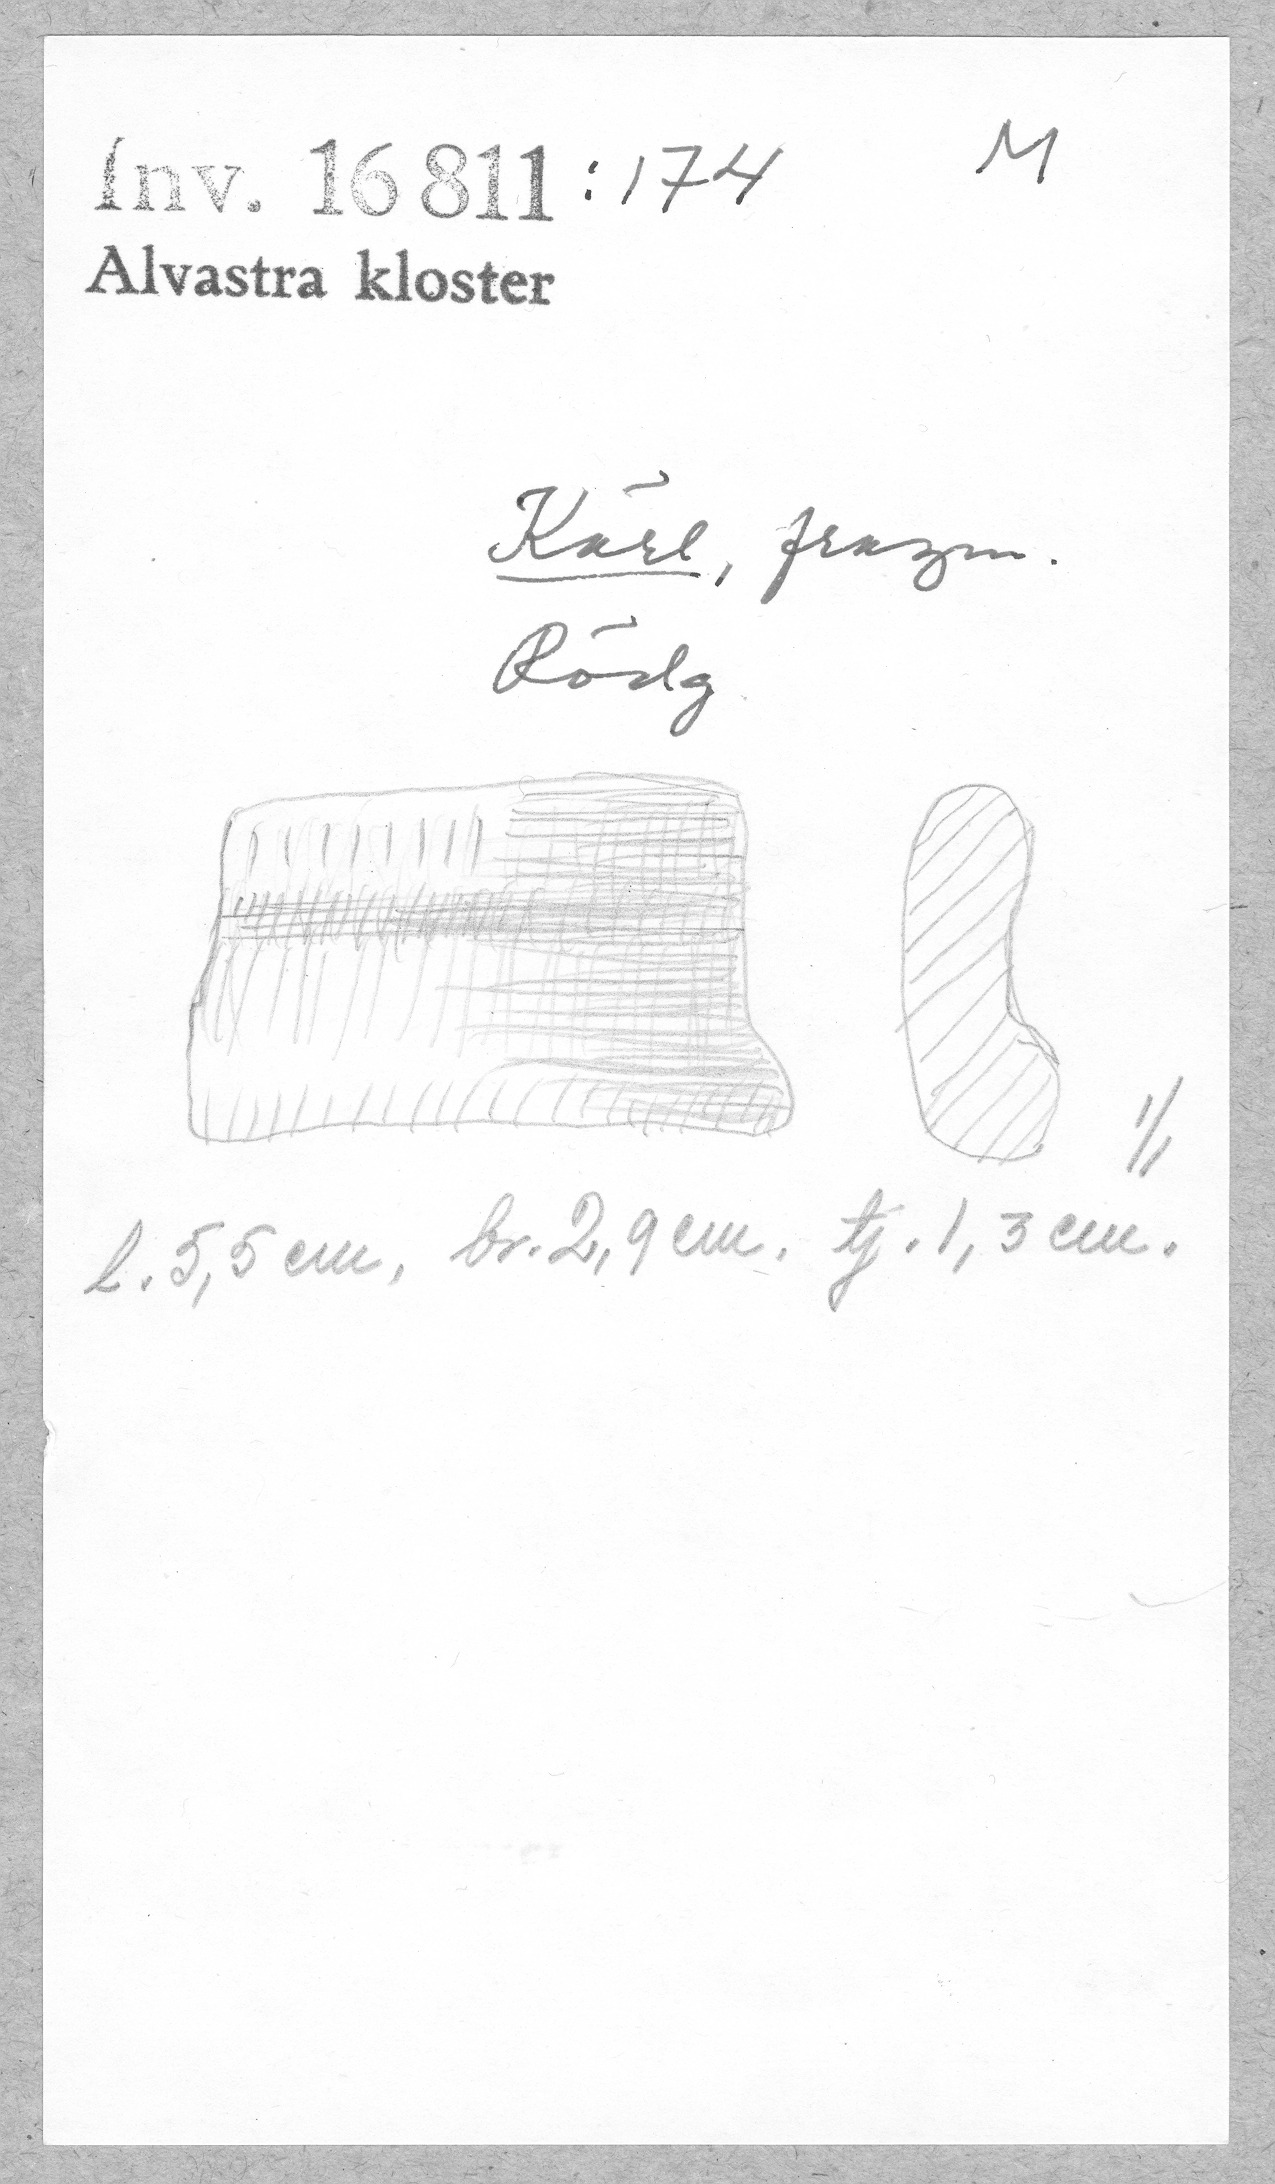 Inv. 16 811 :174 M
Alvastra kloster
Kärl, fragm.
Rödg
1/1
l. 5,5 cm, br. 2,9 cm. tj. 1,3 cm.